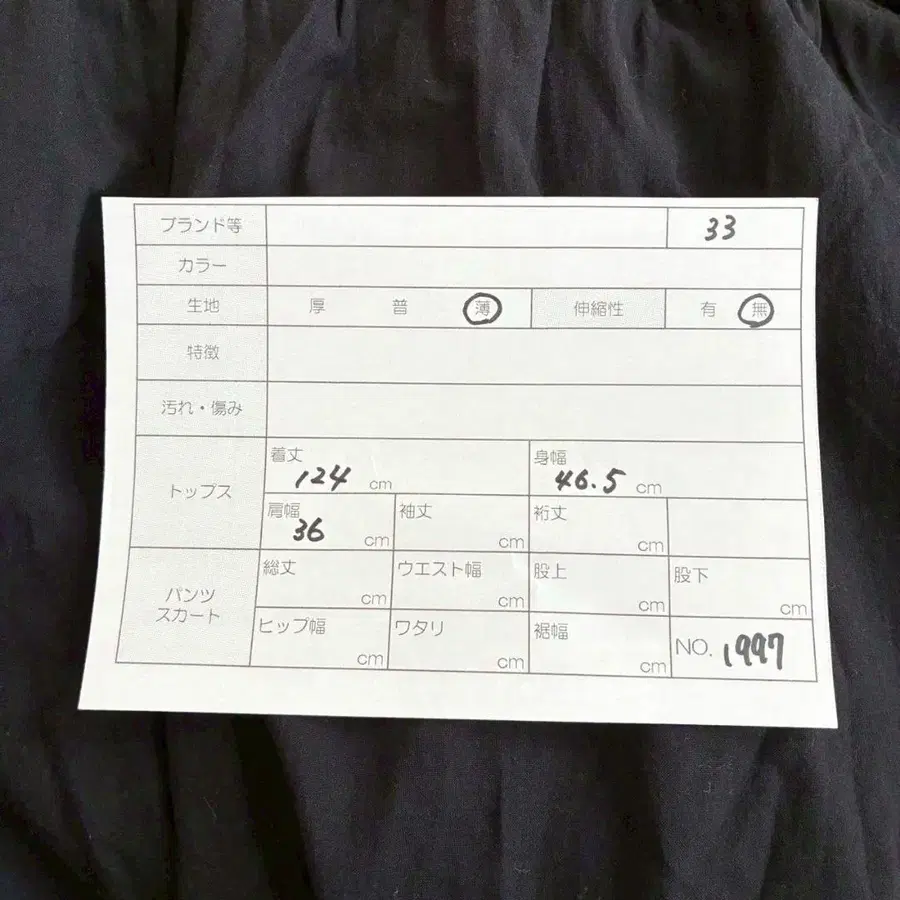 ブランド等 33
カラー
生地 厚 普 薄 伸縮性 有 無
特徴
汚れ・傷み
トップス 着丈 124 cm 身幅 46.5 cm
肩幅 36 cm 袖丈 cm 裄丈 cm
パンツ スカート 総丈 cm ウエスト幅 cm 股上 cm 股下 cm
ヒップ幅 cm ワタリ cm 裾幅 cm NO. 1997